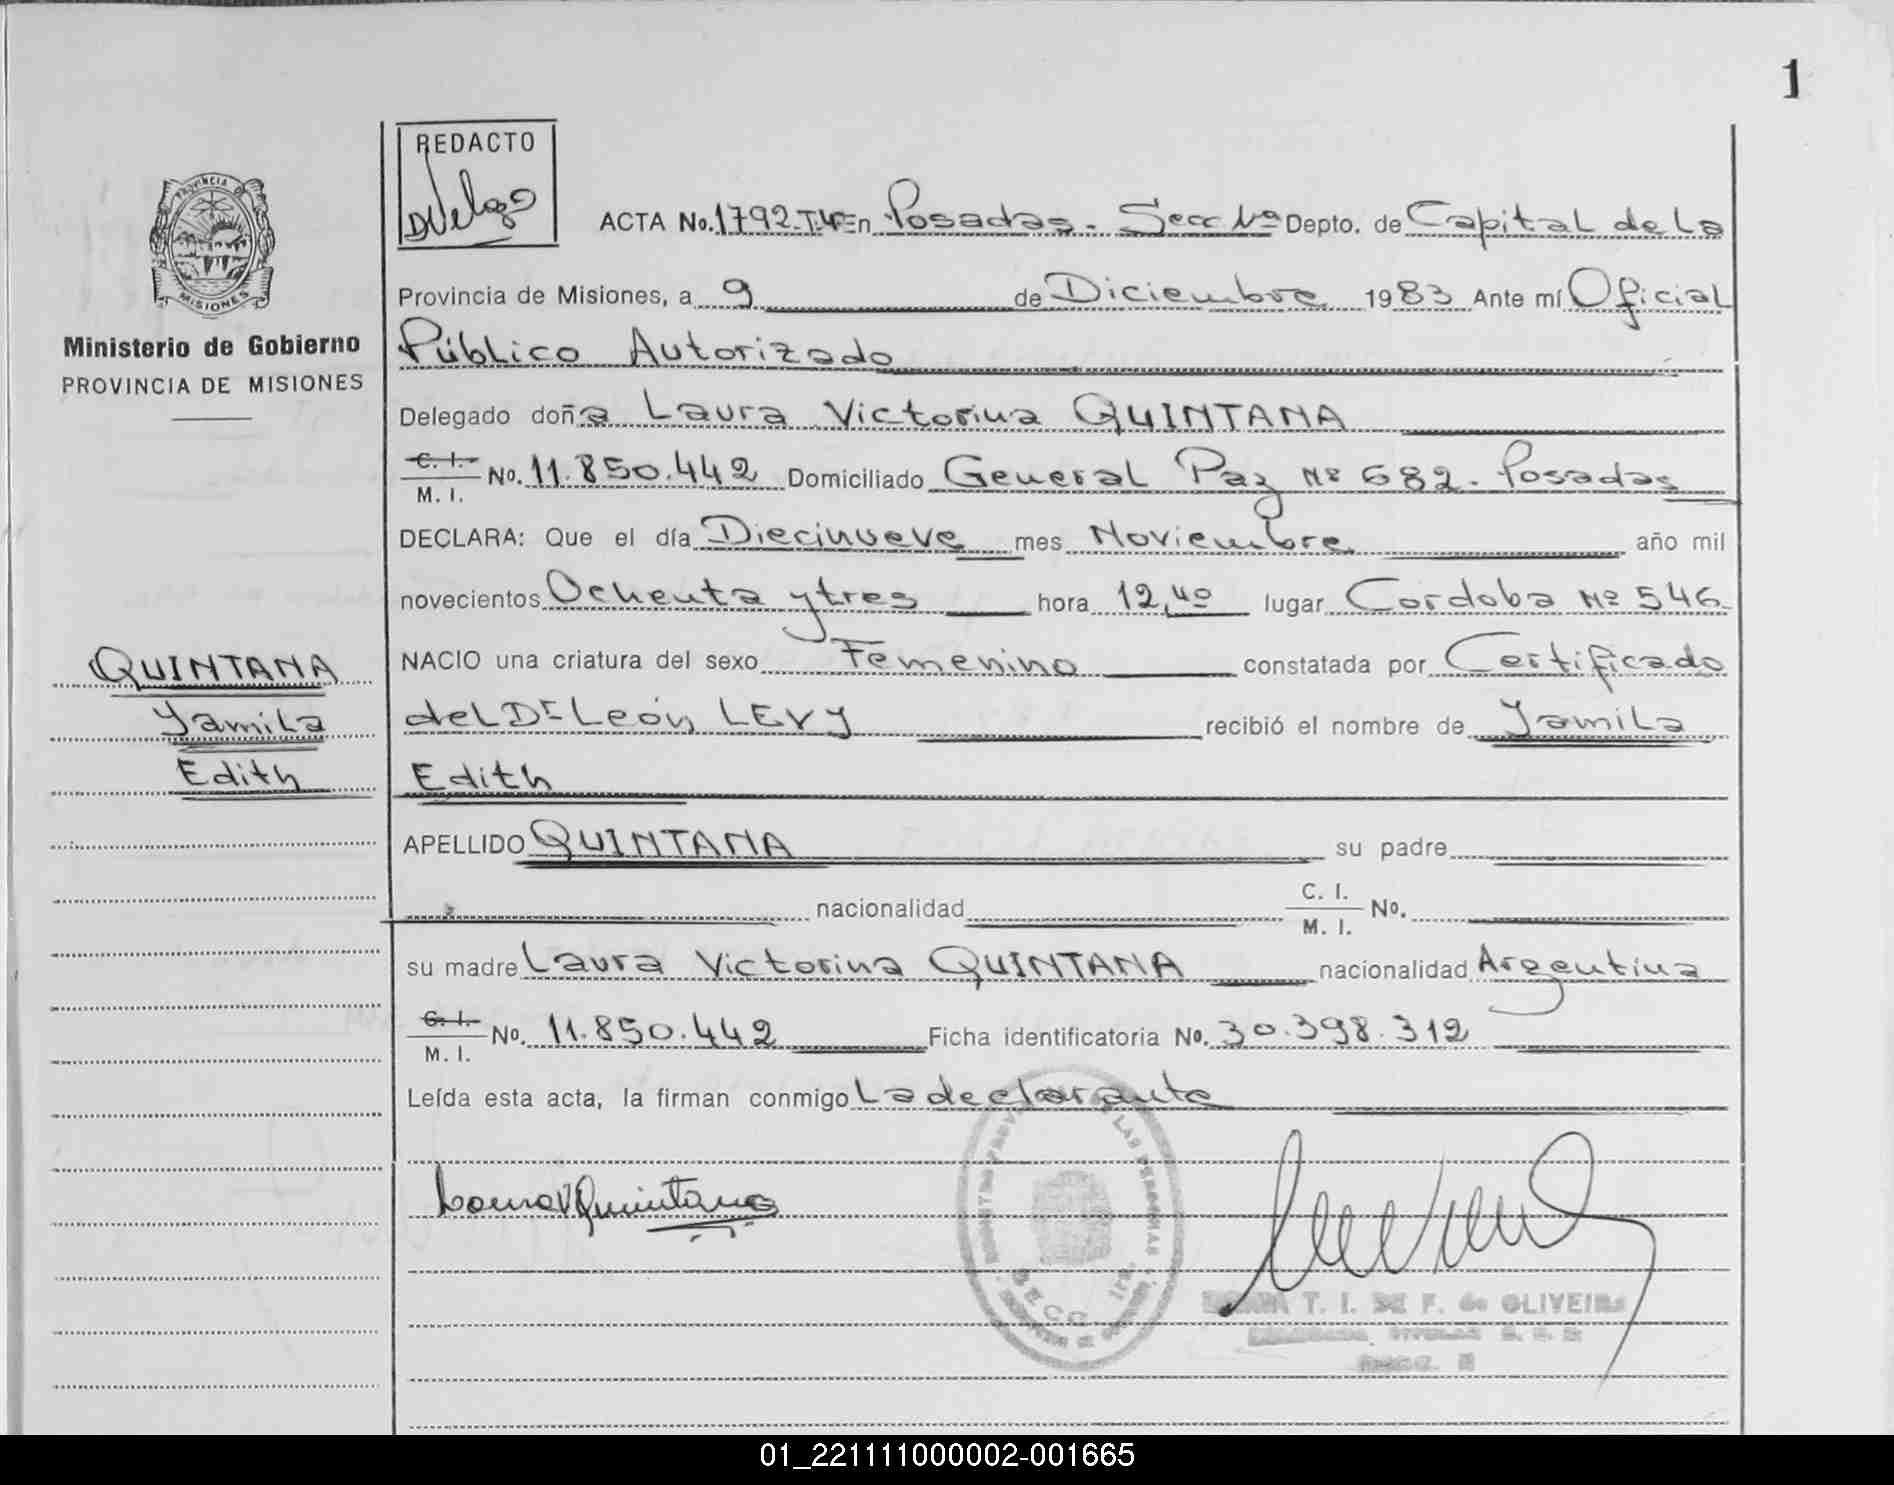 1
REDACTO
DVelozo
PROVINCIA DE
MISIONES
Ministerio de Gobierno
PROVINCIA DE MISIONES
ACTA No. 1792-T.4º En Posadas - Secc 1º Depto. de Capital de la
Provincia de Misiones, a 9 de Diciembre 1983 Ante mí Oficial
Público Autorizado
Delegado doña Laura Victorina QUINTANA
C. I.
M. I. No. 11.850.442 Domiciliado General Paz Nº 682. Posadas
DECLARA: Que el día Diecinueve mes Noviembre año mil
novecientos Ochenta y tres hora 12,40 lugar Cordoba Nº 546
NACIO una criatura del sexo Femenino constatada por Certificado
del Dr León LEVY recibió el nombre de Yamila
Edith
QUINTANA
Yamila
Edith
APELLIDO QUINTANA su padre
nacionalidad C. I.
M. I. No.
su madre Laura Victorina QUINTANA nacionalidad Argentina
C. I.
M. I. No. 11.850.442 Ficha identificatoria No. 30.398.312
Leída esta acta, la firman conmigo La declarante
Laura V Quintana
LAS PERSONAS
SECC. 1ra.
T. I. DE F. de OLIVEIRA
TITULAR
SECC.
01_221111000002-001665